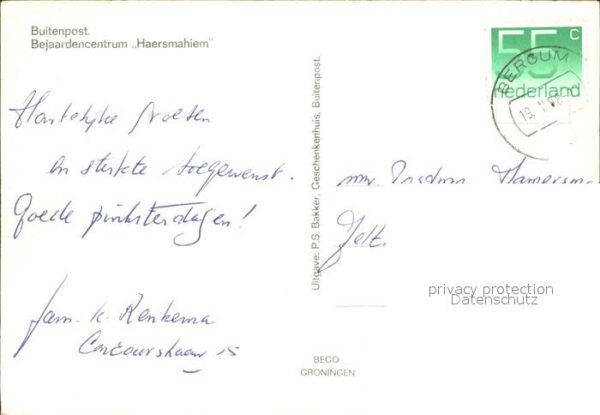 Buitenpost.
Bejaardencentrum „Haersmahiem"
55 c
nederland
BERGUM
19
Hartelijke groeten
en sterkte toegewenst.
Goede pinksterdagen!
fam. K. Renkema
15
Uitgave: P.S. Bakker, Geschenkenhuis, Buitenpost.
BECO
GRONINGEN
mw
privacy protection
Datenschutz